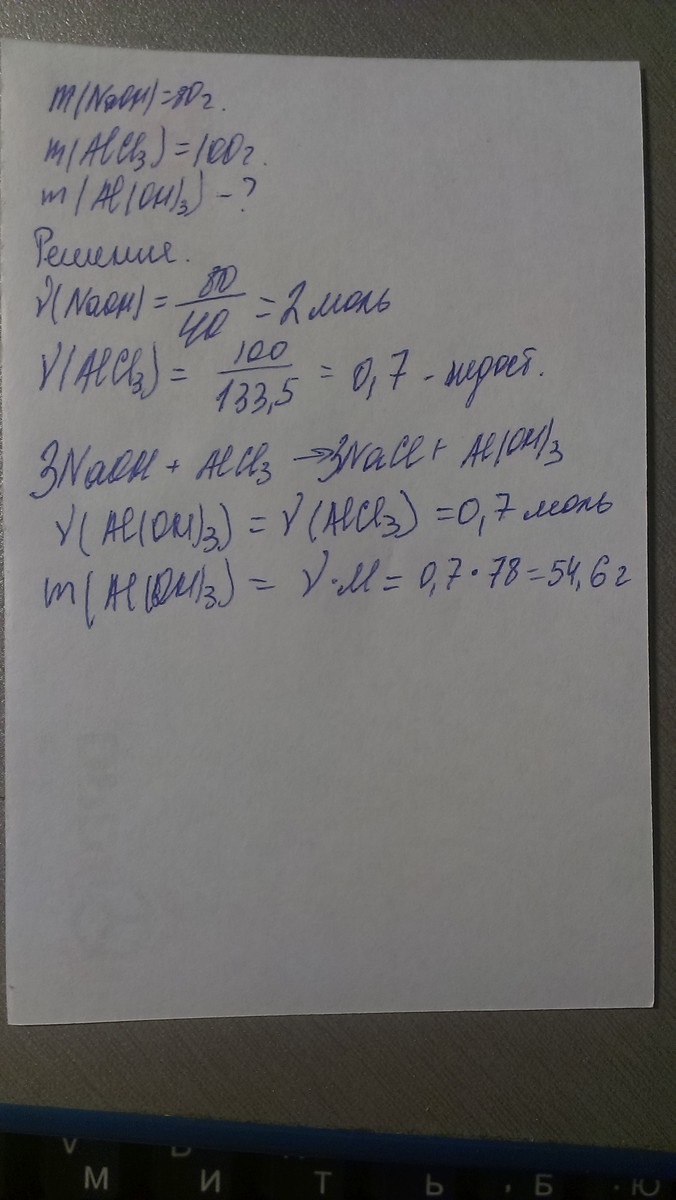 m(NaOH)=80г.
m(AlCl₃)=100г.
m(Al(OH)₃) - ?
Решение.
ν(NaOH) = 80/40 = 2 моль
ν(AlCl₃) = 100/133,5 = 0,7 - недост.
3NaOH + AlCl₃ → 3NaCl + Al(OH)₃
ν(Al(OH)₃) = ν(AlCl₃) = 0,7 моль
m(Al(OH)₃) = ν·M = 0,7·78 = 54,6 г
М И Т Ь Б Ю